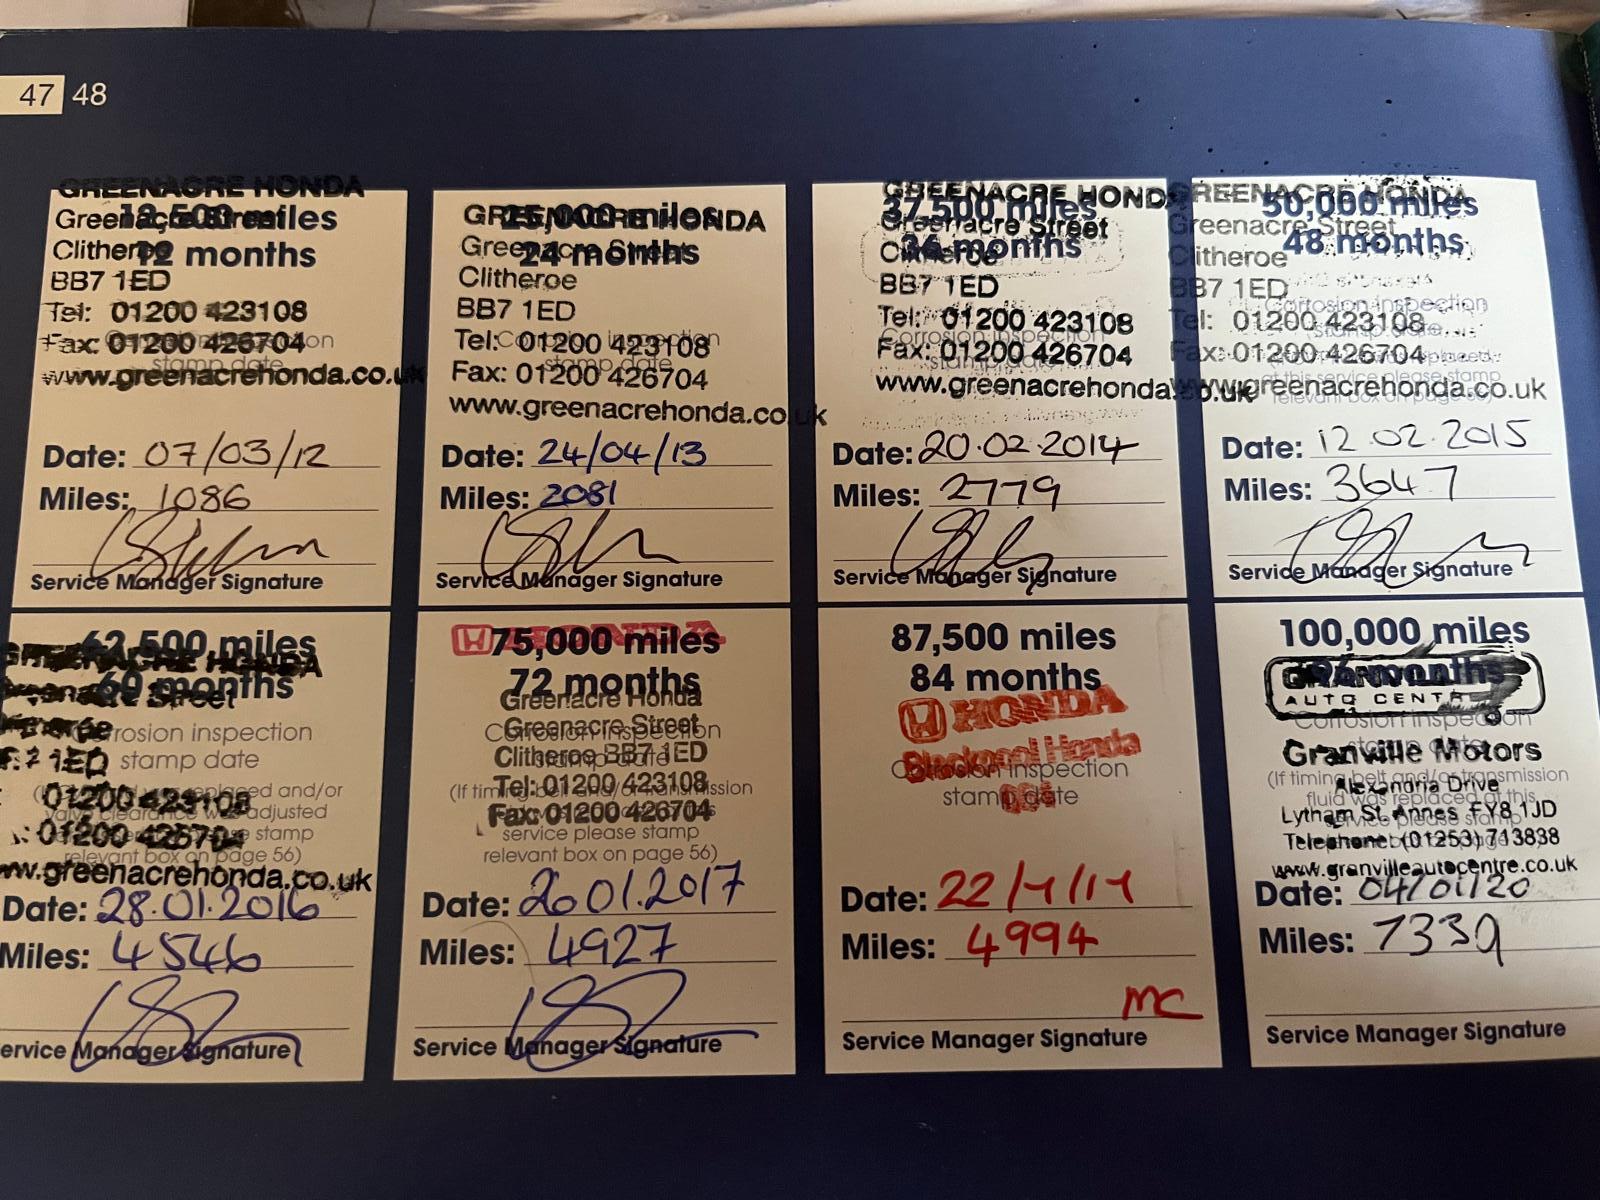 47 48
GREENACRE HONDA
12,500 miles
Greenacre Street
12 months
Clitheroe
BB7 1ED
Tel: 01200 423108
Fax: 01200 426704
Corrosion inspection
stamp date
www.greenacrehonda.co.uk
Date: 07/03/12
Miles: 1086
Service Manager Signature
25,000 miles
GREENACRE HONDA
24 months
Greenacre Street
Clitheroe
BB7 1ED
Corrosion inspection
stamp date
Tel: 01200 423108
Fax: 01200 426704
www.greenacrehonda.co.uk
Date: 24/04/13
Miles: 2081
Service Manager Signature
GREENACRE HONDA
37,500 miles
Greenacre Street
36 months
Clitheroe
BB7 1ED
Tel: 01200 423108
Corrosion inspection
stamp date
Fax: 01200 426704
www.greenacrehonda.co.uk
Date: 20.02.2014
Miles: 2779
Service Manager Signature
GREENACRE HONDA
50,000 miles
Greenacre Street
48 months
Clitheroe
BB7 1ED
Corrosion inspection
stamp date
Tel: 01200 423108
Fax: 01200 426704
at this service please stamp
relevant box on page 56)
www.greenacrehonda.co.uk
Date: 12.02.2015
Miles: 3647
Service Manager Signature
62,500 miles
GREENACRE HONDA
60 months
Street
Corrosion inspection
1ED stamp date
replaced and/or
01200 423108
valve clearance was adjusted
01200 426704
please stamp
relevant box on page 56)
www.greenacrehonda.co.uk
Date: 28.01.2016
Miles: 4546
Service Manager Signature
HONDA
75,000 miles
72 months
Greenacre Honda
Greenacre Street
Corrosion inspection
stamp date
Clitheroe BB7 1ED
Tel: 01200 423108
(If timing belt and/or transmission
Fax: 01200 426704
service please stamp
relevant box on page 56)
Date: 26.01.2017
Miles: 4927
Service Manager Signature
87,500 miles
84 months
HONDA
Blackpool Honda
Corrosion inspection
stamp date
Date: 22/
Miles: 4994
MC
Service Manager Signature
100,000 miles
96 months
AUTO CENTR
Corrosion inspection
Granville Motors
(If timing belt and/or transmission
Alexandria Drive
fluid was replaced at this
Lytham St. Annes FY8 1JD
service please stamp
Telephone: (01253) 713838
www.granvilleautocentre.co.uk
Date: 04/01/20
Miles: 7339
Service Manager Signature